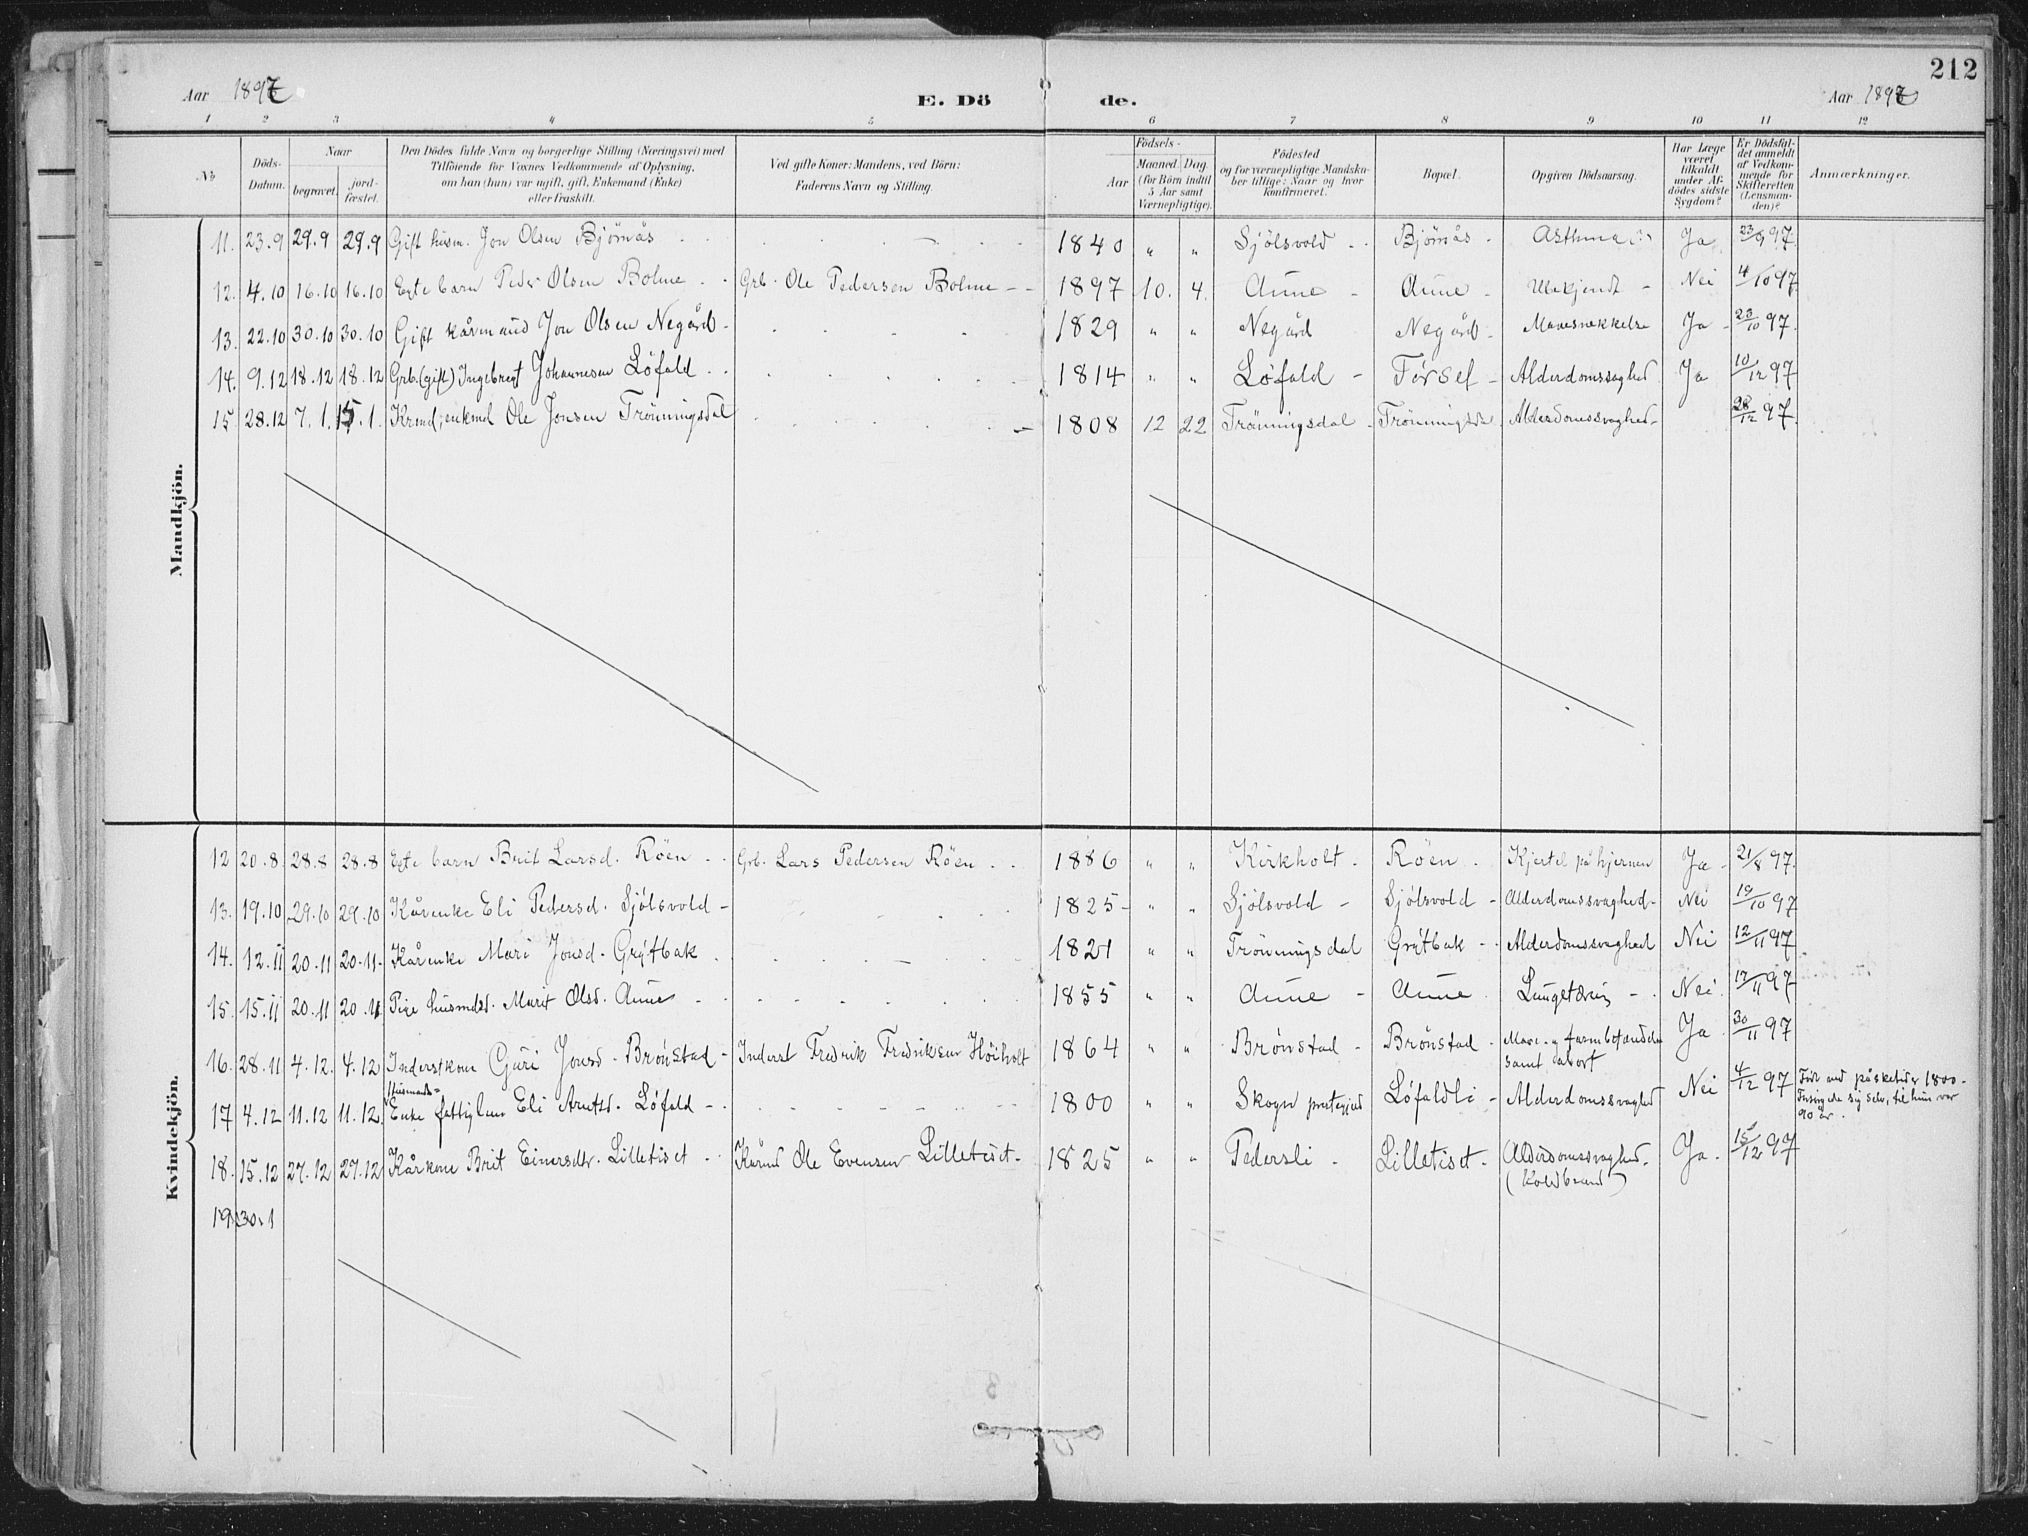 212
Aar 1897
E. Döde.
Aar 1897
1 2 3 4 5 6 7 8 9 10 11 12
No
Döds-Datum.
Naar
begravet.
jord-fæstet.
Den Dödes fulde Navn og borgerlige Stilling (Næringsvei) med
Tilföiende for Voxnes Vedkommende af Oplysning,
om han (hun) var ugift, gift, Enkemand (Enke)
eller fraskilt.
Ved gifte Koner: Mandens, ved Börn:
Faderens Navn og Stilling.
Födsels-
Aar
Maaned. Dag
(for Börn indtil
5 Aar samt
Værnepligtige).
Födested
og for værnepligtige Mandskaber tillige: Naar og hvor
konfirmeret.
Bopæl.
Opgiven Dödsaarsag.
Har Læge
været
tilkaldt
under Afdödes sidste
Sygdom?
Er Dödsfaldet anmeldt
af Vedkommende for
Skifteretten
(Lensmanden)?
Anmærkninger.
Mandkjön.
11. 23.9 29.9 29.9 Gift husm. Jon Olsen Bjørnås - 1840 " " Sjölsvold - Bjørnås - Asthma Ja 23/9 97.
12. 4.10 16.10 16.10 Egte barn Peder Olsen Bolme - Grb. Ole Pedersen Bolme - 1897 10. 4. Aune - Aune - Ubekjendt - Nei 4/10 97
13. 22.10 30.10 30.10 Gift kårmand Jon Olsen Negård - 1829 " " Negård Negård - Mavesvekkelse Ja - 23/10 97.
14. 9.12 18.12 18.12 Grb. (gift) Ingebregt Johannesen Løfald - 1814 " " Løfald - Førsel - Alderdomssvaghed Ja 10/12 97
15. 28.12 7.1. 15.1. Krmd, enkmd Ole Jonsen Trönningsdal - 1808 12 22 Trönningsdal - Trönningsdal Alderdomssvaghed - 28/12 97.
Kvindekjön.
12 20.8 28.8 28.8 Egte barn Brit Larsd. Röen - Grb. Lars Pedersen Röen - 1886 " " Kirkholt - Röen - Kjertel på hjernen Ja - 21/8 97.
13. 19.10 29.10 29.10 Kårenke Eli Pedersd. Sjölsvold - 1825 - " " Sjölsvold - Sjölsvold - Alderdomssvaghed - Nei 19/10 97
14. 12.11 20.11 20.11. Kårenke Mari Jonsd. Grøtbak - 1821 " " Trönningsdal Grøtbak - Alderdomssvaghed Nei 12/11 97
15. 15.11 20.11 20.11. Pige husmdsd. Marit Olsd. Aune - 1855 " " Aune - Aune Lungetæring - Nei 17/11 97
16. 28.11 4.12. 4.12 Inderstkone Guri Jonsd. Brønstad - Inderst Fredrik Fredriksen Höiholt 1864 " " Brønstad - Brønstad - Mave- og tarmbetændelse Ja 30/11 97
samt abort
Husmands-
17 4.12 11.12 11.12. Enke fattiglem Eli Arntsd. Løfald - 1800 " " Skogn prestegjed Løfaldli - Alderdomssvaghed Nei 4/12 97 Født ved påsketider 1800 -
Forsørgede sig selv, til hun var
90 år.
18. 15.12 27.12 27.12 Kårkone Brit Einersdtr. Lilletiset - Kårmd Ole Evensen Lilletiset - 1825 " " Pedersli - Lilletiset - Alderdomssvaghed - Ja. 15/12 97
(koldbrand)
19. 30.1